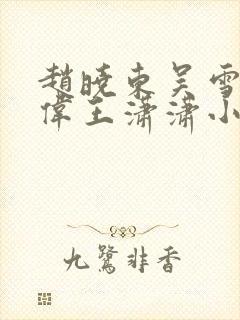 趙曉東吴雪
偉王瀟瀟小
九鷺非香